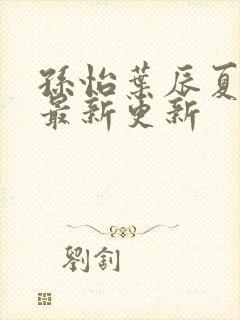 孫怡葉辰夏
最新更新
劉釗